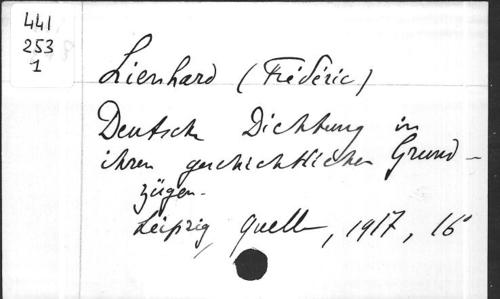 441
253
1
Lienhard (Frédéric)
Deutsche Dichtung in
ihren geschichtlichen Grund-
zügen.
Leipzig, Quelle, 1917, 16°